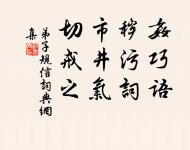 姦巧語
穢污詞
市井氣
切戒之
弟子規信詞典網
集